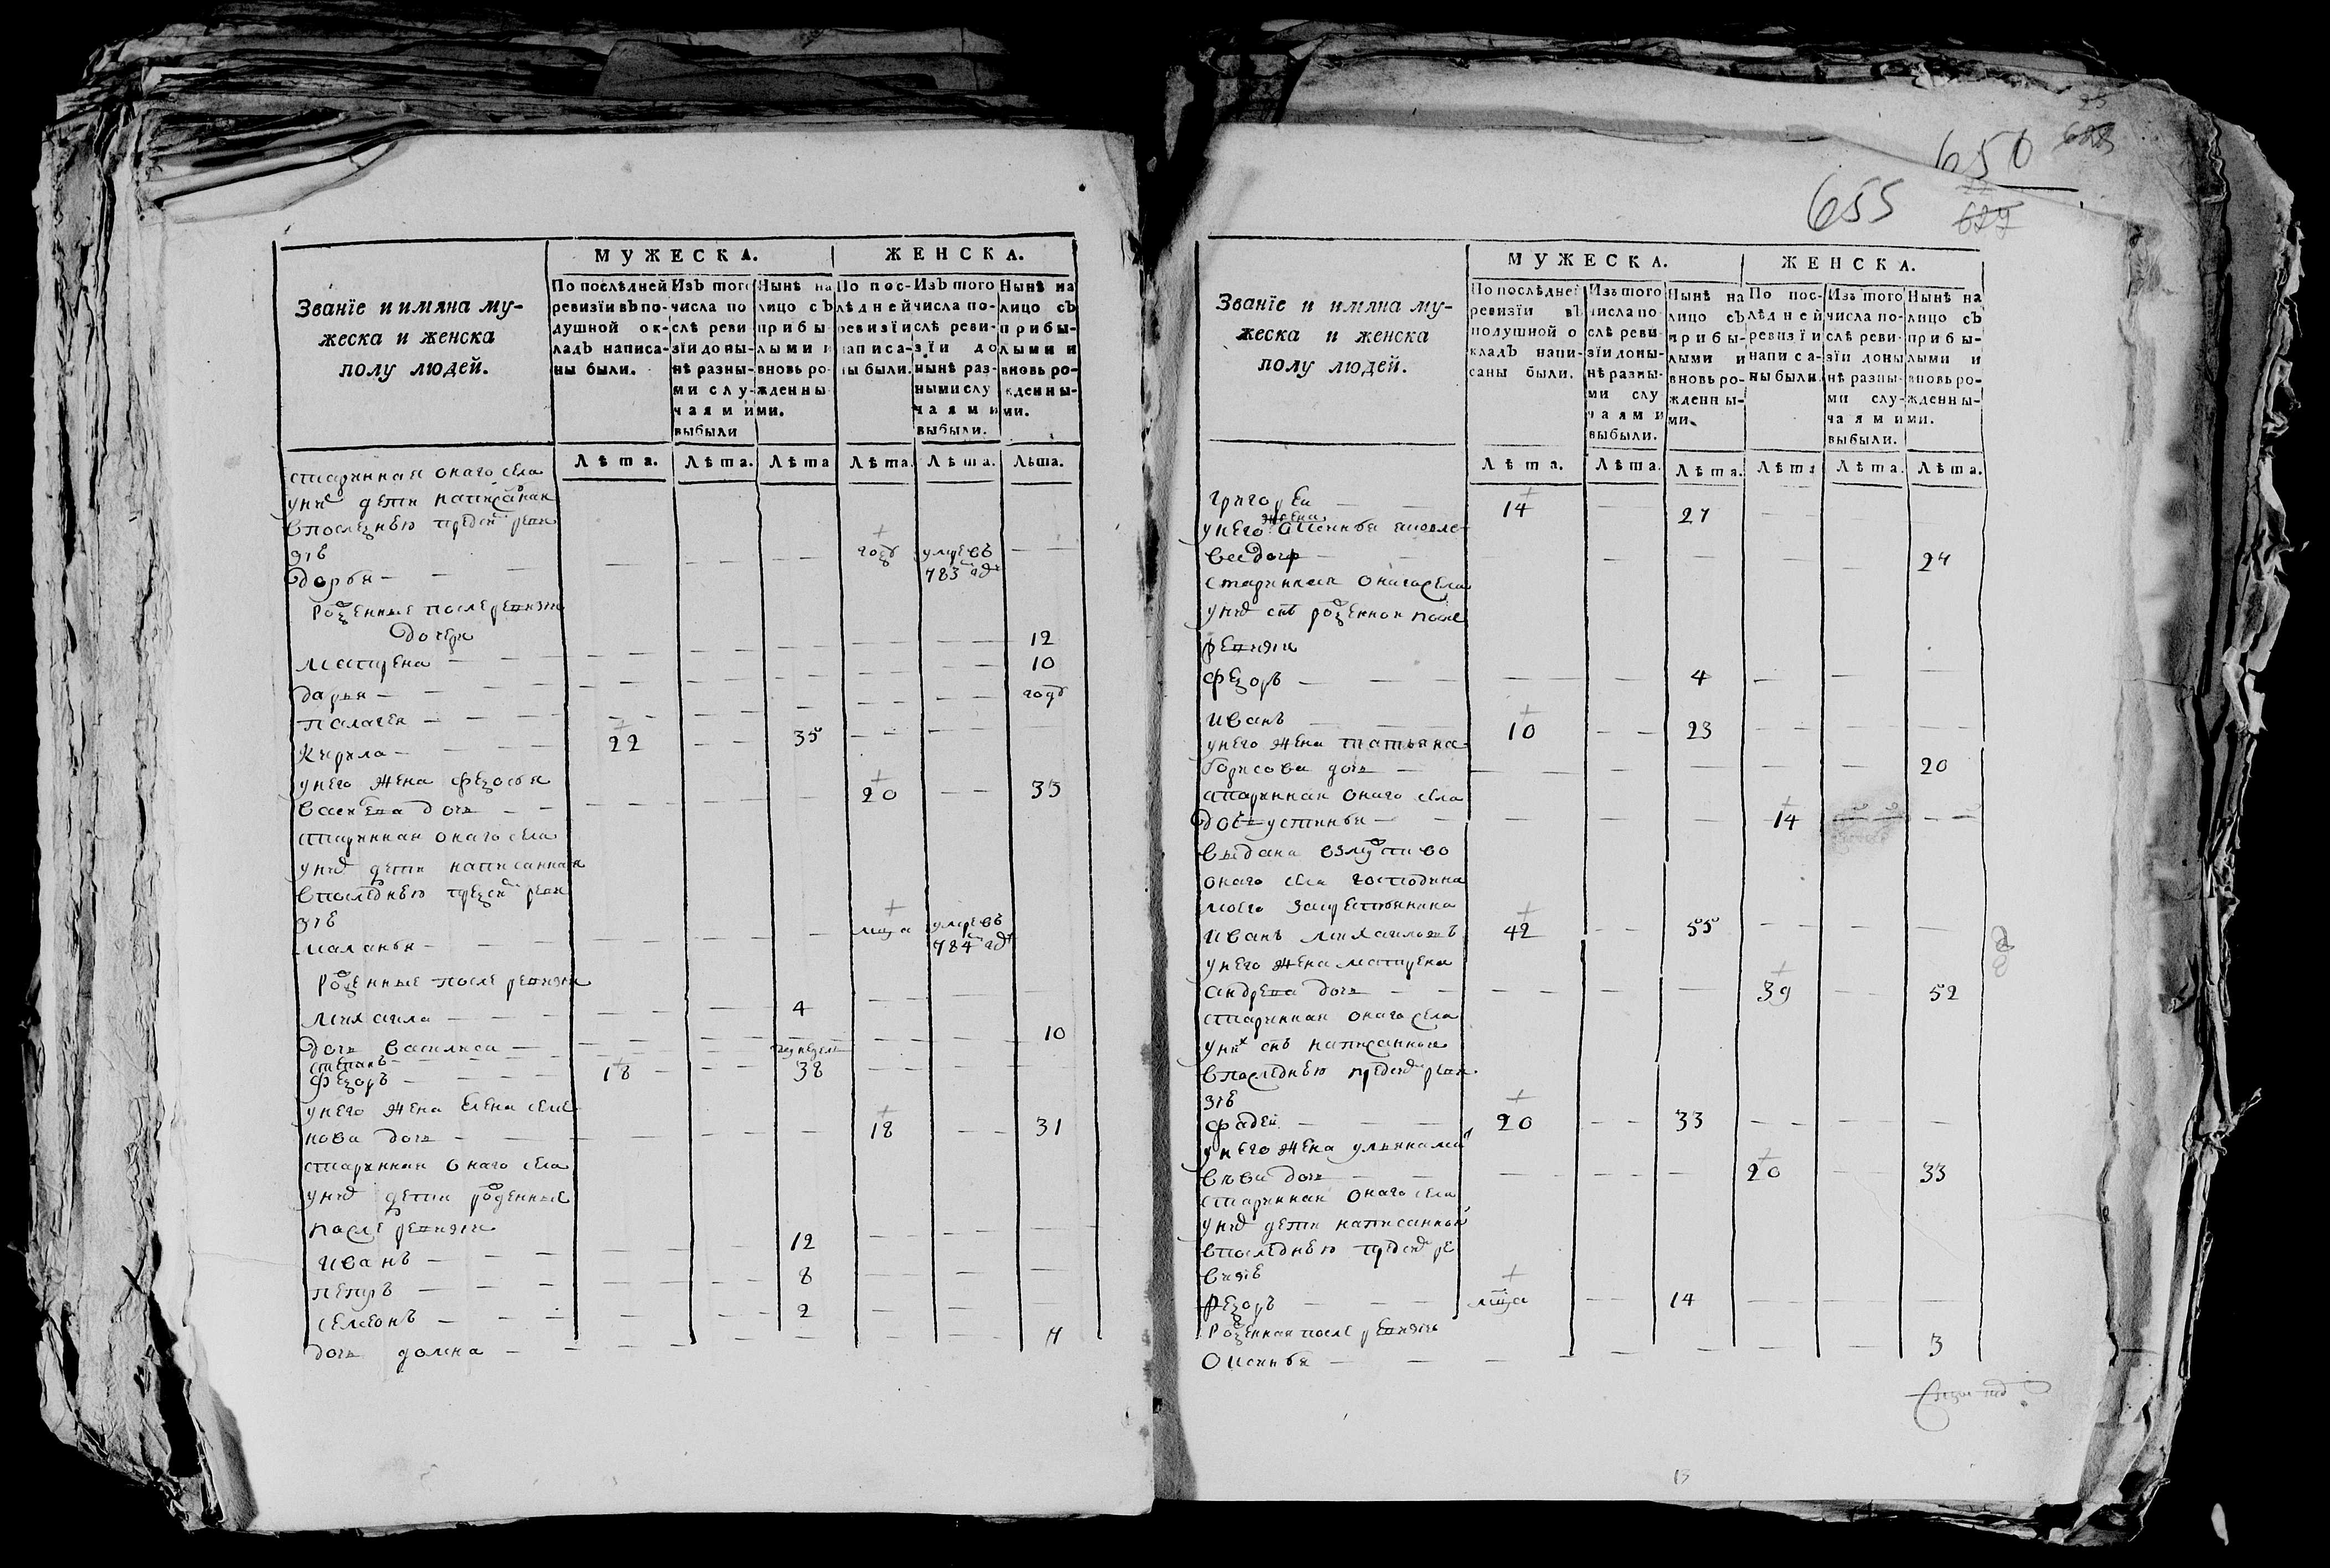 МУЖЕСКА.
ЖЕНСКА.
Званїе и имяна му-
жеска и женска
полу людей.
По послѣдней
ревизїи въ по-
душной ок-
ладъ написа-
ны были.
Изъ того
числа по
слѣ реви
зїи до ны-
нѣ разны-
ми слу-
чаями
выбыли
Нынѣ на
лицо съ
прибы-
лыми и
вновь ро-
жденны
ми.
По пос-
лѣдней
ревизїи
написа-
ны были.
Изъ того
числа по-
слѣ реви-
зїи до
нынѣ раз-
ными слу
чаями
выбыли.
Нынѣ на
лицо съ
прибы-
лыми и
вновь ро-
жденны-
ми.
Лѣта. Лѣта. Лѣта Лѣта. Лѣта. Лѣта.
старинная онаго села
у них дети написанная
в последнею пред сей реви
зïе
дарья — — — — годъ умре въ 783 годе — —
Рожденные после ревизïи
дочери
матрена — — — — — — 12
дарья — — — — — — 10
пелагея — — — — — — годъ
Кирила — 22 — — 35 — — —
у него жена федосья
васильева дочь — — — — 20 — — 33
старинная онаго села
у них дети написанная
в последнею пред сей реви
зïе
маланья — — — — мца умре въ 784 годе
Рожденные после ревизïи
михаила — — — 4 — — —
дочь василиса — — — — — — 10
степанъ — — — недель
Федоръ — 18 — — 38 — — —
у него жена елена семе
нова дочь — — — — 18 — — 31
старинная онаго села
у них дети рожденные
после ревизïи
Иванъ — — — 12 — — —
петръ — — — 8 — — —
семионъ — — — 2 — — —
дочь домна — — — — — — 4
650
655
627
МУЖЕСКА.
ЖЕНСКА.
Званїе и имяна му-
жеска и женска
полу людей.
По послѣдней
ревизїи въ
подушной о
кладъ напи-
саны были.
Изъ того
числа по
слѣ реви-
зїи до ны-
нѣ разны-
ми слу
чаями
выбыли.
Нынѣ на
лицо съ
прибы-
лыми и
вновь ро-
жденны-
ми.
По пос-
лѣдней
ревизїи
написа-
ны были.
Изъ того
числа по-
слѣ реви-
зїи до ны
нѣ разны-
ми слу-
чаями
выбыли.
Нынѣ на
лицо съ
прибы-
лыми и
вновь ро-
жденны-
ми.
Лѣта. Лѣта. Лѣта. Лѣта Лѣта. Лѣта.
григорей — 14 — 27 — —
у него жена
дочь — — — — — — 24
старинная онаго села
у них снъ рожденной после
ревизïи
Федоръ — — — 4 — — —
Иванъ — 10 — — 23 — — —
у него жена татьяна
борисова дочь — — — — — — 20
старинная онаго села
дочь устинья — — — — 14 — —
выдана в замуство
онаго села господина
моего за крестьянина
Иванъ михаиловъ 42 — — 55 — — —
у него жена матрена
андреева дочь — — — — 39 — 52
старинная онаго села
у них снъ написанные
в последнею пред сей реви
зïе
Фадей — 20 — — 33 — — —
у него жена ульяна
дочь — — — — 20 — 33
старинная онаго села
у них дети написанный
в последнею пред сей ре
визïе
Федоръ — мца — 14 — — —
Рожденная после ревизïи
— — — — — — 3
13